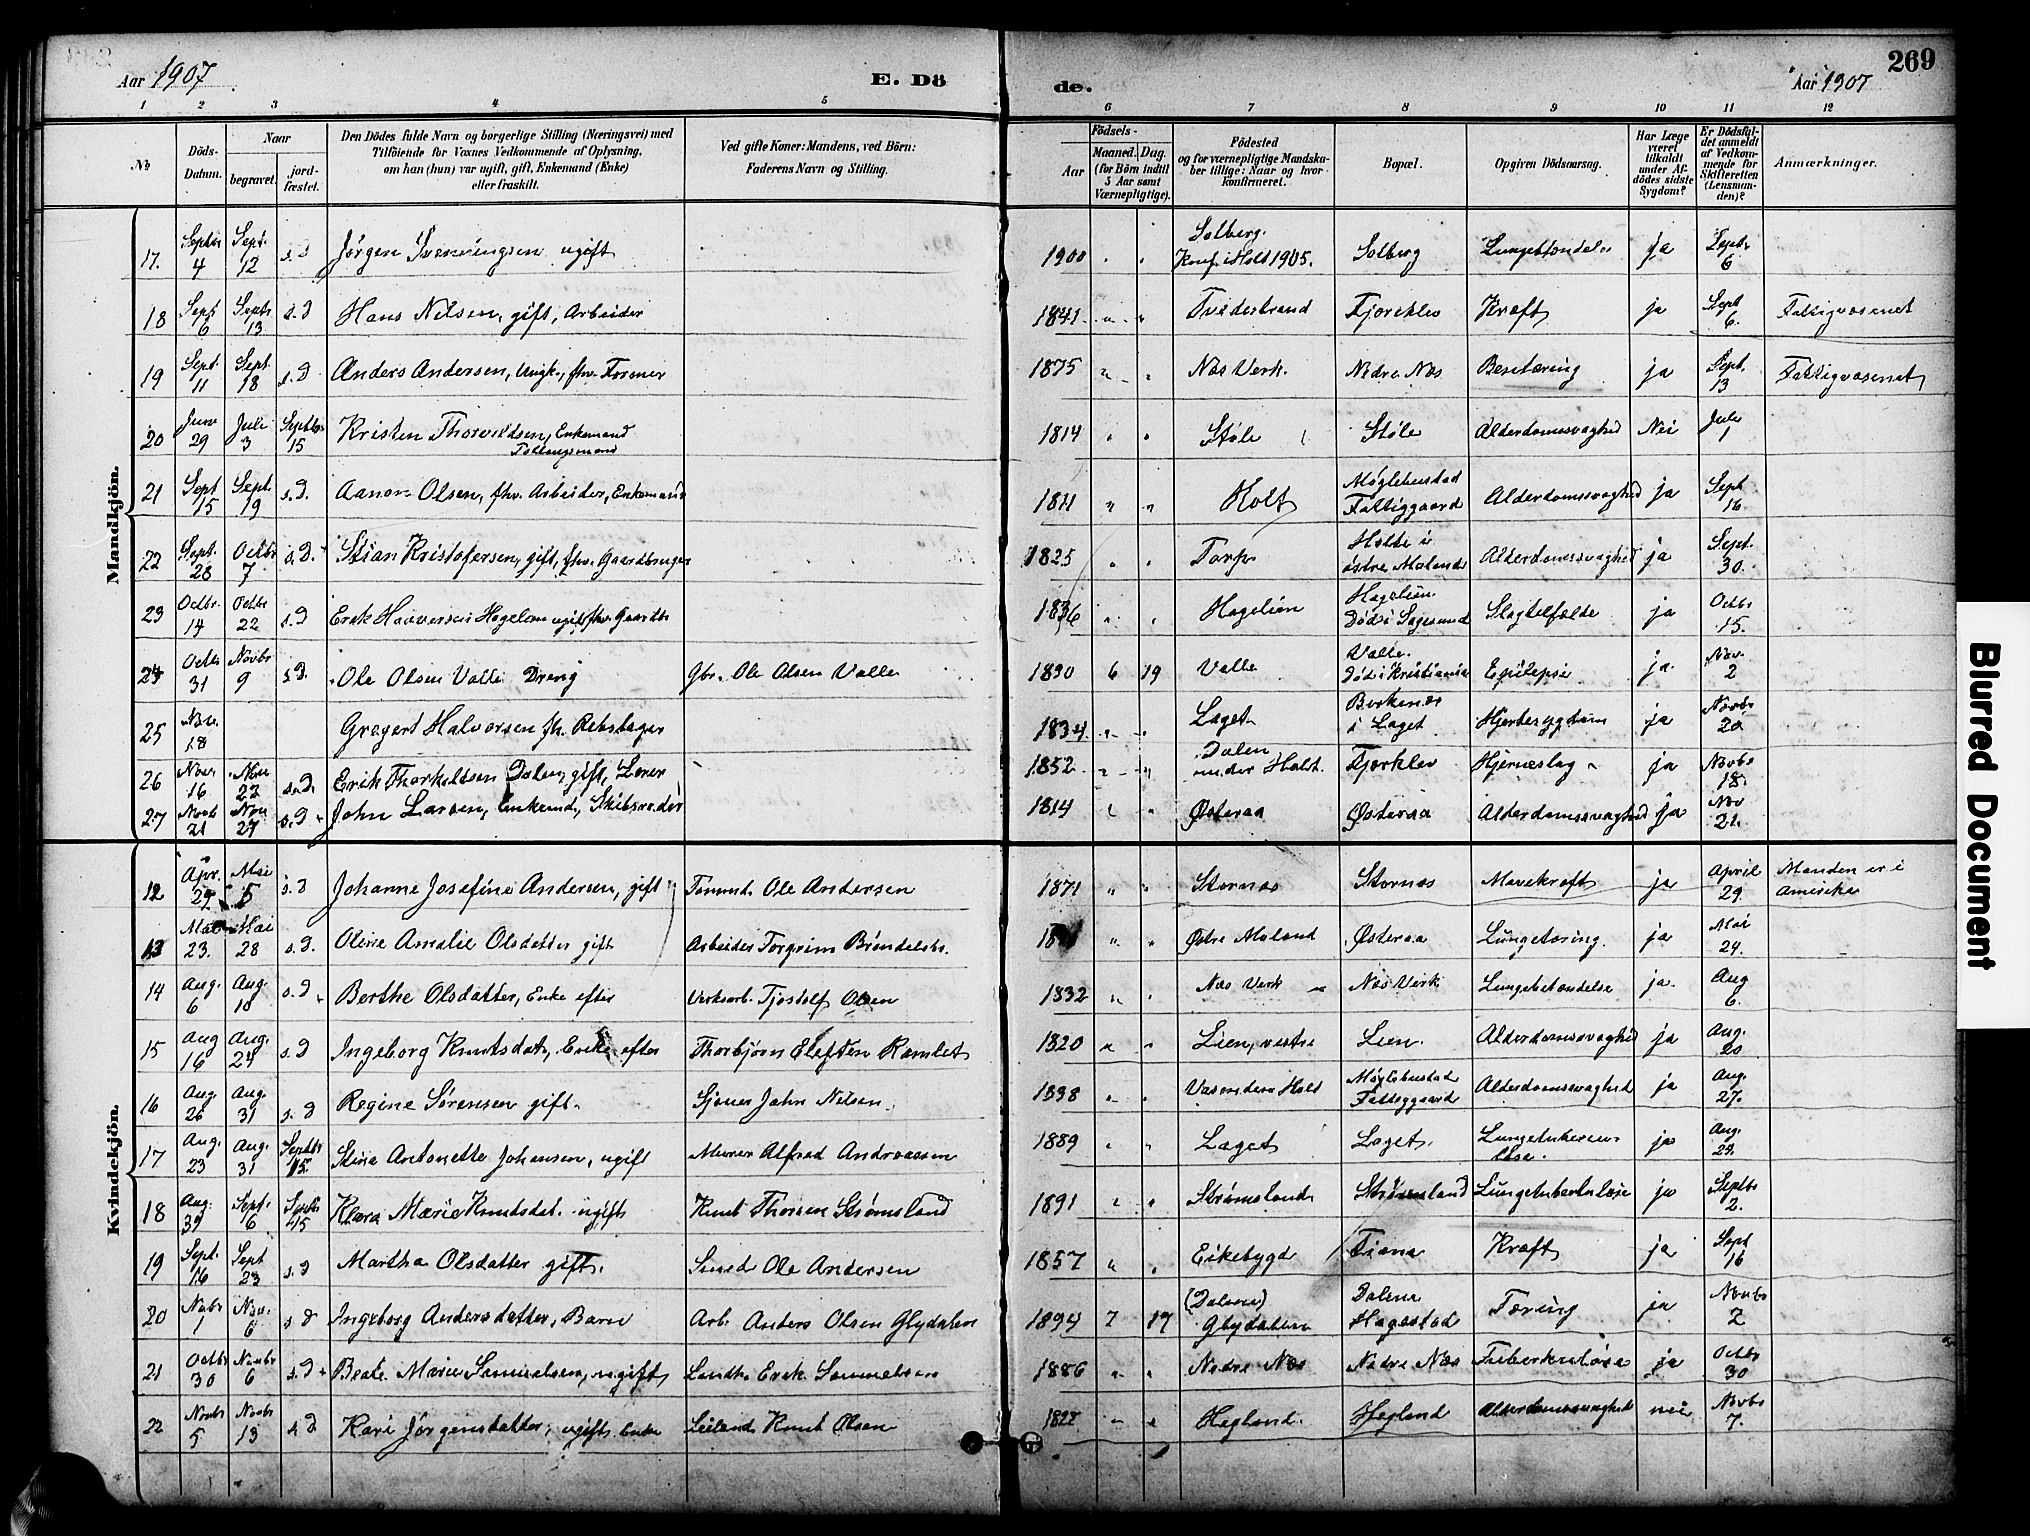 Aar 1907
E. Döde.
269
Aar 1907
1 2 3 4 5 6 7 8 9 10 11 12
No
Döds-Datum.
Naar
begravet.
jord-fæstet.
Den Dödes fulde Navn og borgerlige Stilling (Næringsvei) med
Tilföiende for Voxnes Vedkommende af Oplysning,
om han (hun) var ugift, gift, Enkemand (Enke)
eller fraskilt.
Ved gifte Koner: Mandens, ved Börn:
Faderens Navn og Stilling.
Födsels-
Aar
Maaned. Dag.
(for Börn indtil
5 Aar samt
Værnepligtige).
Födested
og for værnepligtige Mandska-
ber tillige: Naar og hvor
konfirmeret.
Bopæl.
Opgiven Dödsaarsag.
Har Læge
været
tilkaldt
under Af-
dödes sidste
Sygdom?
Er Dödsfal-
det anmeldt
af Vedkom-
mende for
Skifteretten
(Lensman-
den)?
Anmærkninger.
Mandkjön.
17. Septbr 4 Sept. 12 s.D Jörgen ugift 1900 Solberg. Konf. i Holt 1905. Solberg ja Septbr 6
18 Sept 6 Septbr 13 s.D Hans Nilsen, gift, Arbeider 1841 Tvedestrand Fjorklev Kræft ja Sept 6. Fattigvæsenet
19 Sept. 11 Sept. 18 s.D Anders Andersen, Ungk., fhv. Former 1875 Næs Verk. Nedre Næs Bentæring ja Sept. 13 Fattigvæsenet
20 Juni 29 Juli 3 Septbr 15 Kristen Enkemand 1814 Støle Støle Alderdomssvaghed Nei Juli 1
21 Sept 15 Sept. 19 s.D. Aanon Olsen, fhv. Arbeider, Enkemand 1811 Holt Møglebustad Fattiggaard Alderdomssvaghed ja Sept 16
22 Sept. 28 Octbr 7 s.D. Stian Kristofersen, gift, fhv. Gaardbruger 1825 Torp Holte i østre Moland Alderdomssvaghed ja Sept. 30.
23 Octbr. 14 Octbr 22 s.D Erik ugift fhv. Gaardbr 1836 Hagelien Hagelien. Død i Sagesund Slagtilfælde ja Octbr 15.
24 Octbr 31 Novbr 9 s.D. Ole Olsen Valle Dreng Gbr. Ole Olsen Valle 1890 6 19 Valle Valle. Død i Kristiania Epilepsi ja. Nov. 2
25 Nov. 18 Gregert Halvorsen fh. Rebslager 1834 Laget Berkenes i Laget Hjertesygdom ja Novbr 20
26 Novr 16 Nov 22 s.D. Erik Thorkildsen Dalen, gift, Lærer 1852 Dalen under Holt. Fjorklev Hjerneslag ja Novbr 18.
27 Novb 21 Nov 27 s.D John Larsen, Enkemd, Skibsreder 1814 Østeraa Østeraa Alderdomssvaghed ja Nov 21.
Kvindekjön.
12 Apr. Mai 5 s.D Johanne Josefine Andersen, gift Tømmd. Ole Andersen 1871 Stornæs Stornæs Mavekræft ja April 29. Manden er i Amerika
13 Mai 23. Mai 28 s.D. Oline Amalie Olsdatter gift Arbeider Torgrim Østre Moland Østeraa Lungetæring. ja Mai 24.
14 Aug. 6 Aug. 10 s.D Berthe Olsdatter, Enke efter Verksarb. Tjostolf Olsen 1832 Næs Verk Næs Verk Lungebetændelse ja. Aug 6.
15 Aug 16 Aug. 24 s.D Ingeborg Knutsdat., Enke efter Thorbjørn Elefsen Ramlet 1820 Lien, vestre Lien. Alderdomssvaghed ja Aug. 20
16 Aug 26 Aug. 31 s.D Regine Sørensen gift. Sjømd John Nilsen. 1838 Møglebustad Fattiggaard Alderdomssvaghed ja Aug. 27.
17 Aug. 23 Aug. 31 Septbr 15 Stina Antonette Johansen, ugift Murer Alfred Andreassen 1889 Laget Laget. Lungetuberkulose. ja Aug. 24.
18 Aug. Sept. 6 Septbr 15 Klara Marie Knutsdat. ugift Knut Thorsen Strømsland 1891 Strømsland Strømsland Lungetuberkulose ja Septbr 2.
19 Sept. 16 Sept 23 s.D Martha Olsdatter gift. Smed Ole Andersen 1857 Eikebygd Tiona Kræft ja Sept 16
20 Novbr 1 Nov. 6 s.D Ingeborg Andersdatter, Barn Arb. Anders Olsen Glydalen 1894 7 17 (Dalene) Glydalen Dalene Hagestad Tæring ja Novbr 2
21 Octbr 30 Novbr 6 s.D Berte Marie Samuelsen, ugift Landh. Erik Samuelsen 1886 Nedre Næs Nedre Næs Tuberkuløse ja Octbr 30
22 Novbr 5 Novbr 13 s.D Kari Jørgensdatter, ugift Knut Olsen Hegland. Hegland Alderdomssvaghed nei Novbr 7.
Blurred Document